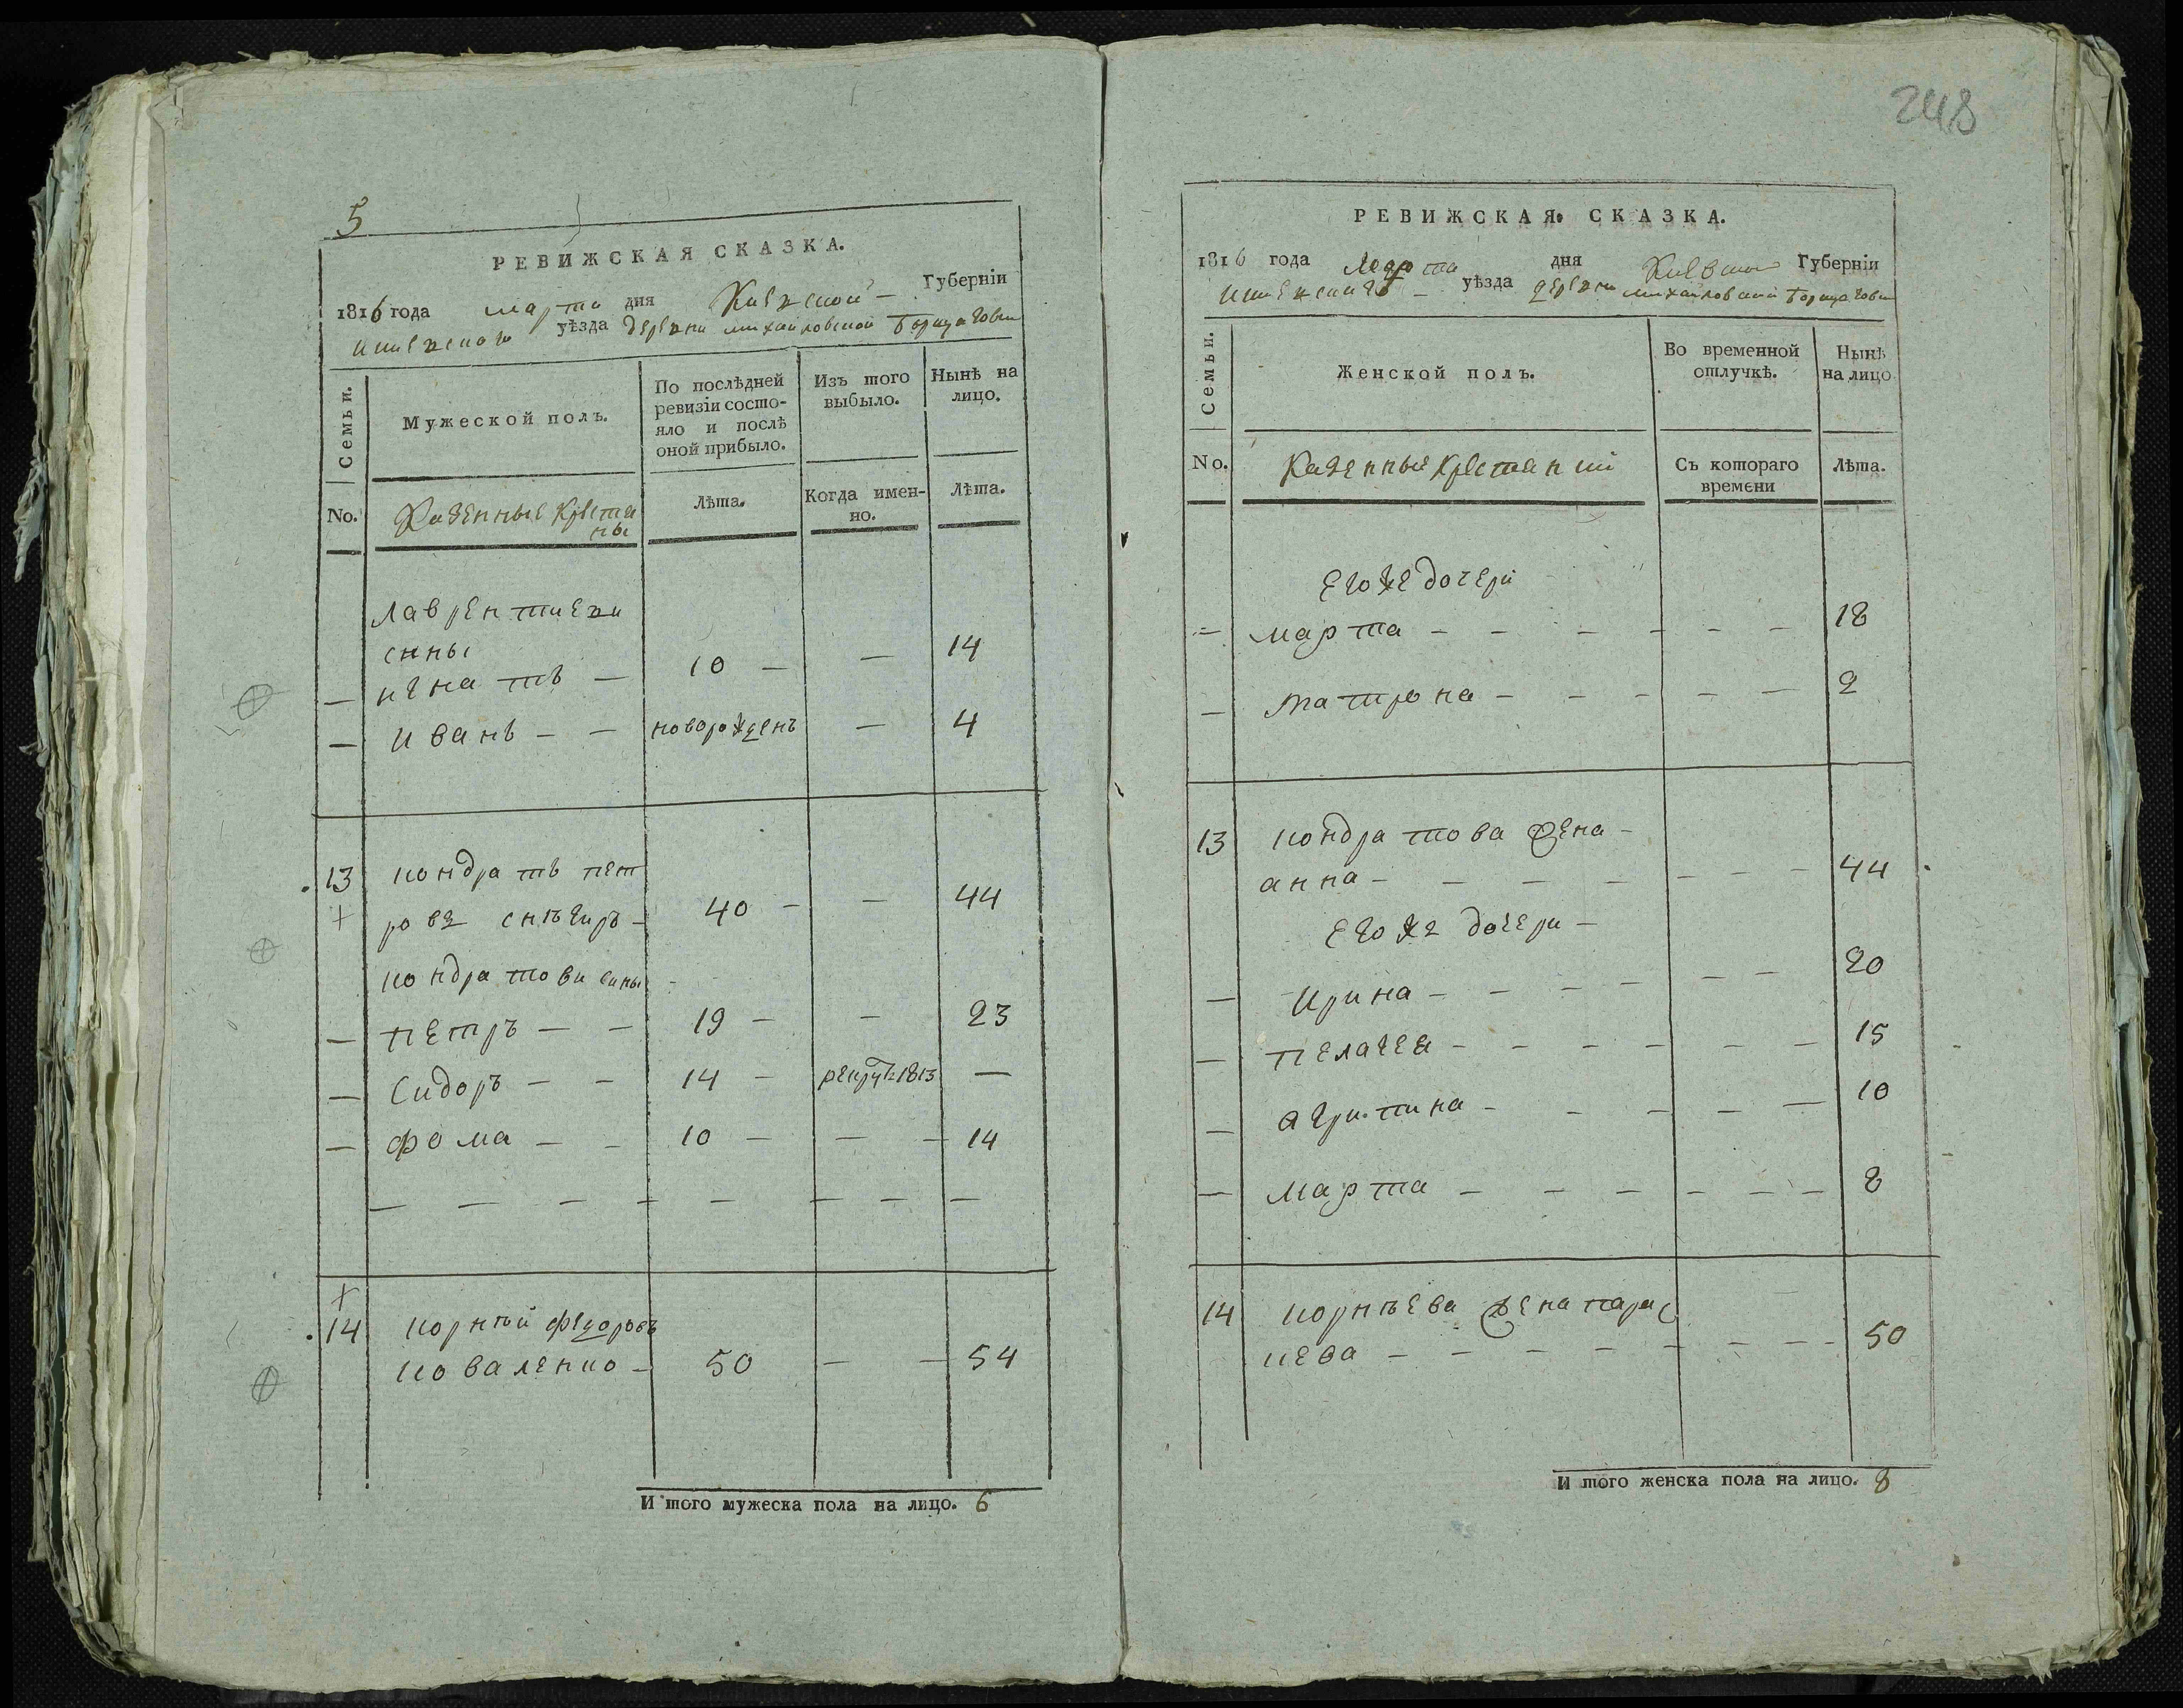 5
РЕВИЖСКАЯ СКАЗКА.
1816 года марта дня Киевской Губерніи
Киевского уѣзда деревни михайловской Борщаговки
Семьи.
Мужеской полъ.
По послѣдней ревизіи состо-
яло и послѣ
оной прибыло.
Изъ того
выбыло.
Нынѣ на
лицо.
No.
Казенные Крестя
ны
Лѣта.
Когда имен-
но.
Лѣта.
Лаврентиеви
сины
— игнатъ — 10 — — 14
— иванъ — — новорожденъ — 4
13 кондратъ пет
ровъ снѣгиръ — 40 — — 44
кондратови сины -
— петръ — — 19 — — 23
— Сидоръ — — 14 — рекрутъ 1813 —
— фома — — 10 — — — 14
— — — — — — — —
14 корнѣй федоровъ
коваленко — 50 — — 54
И того мужеска пола на лицо. 6
248
РЕВИЖСКАЯ СКАЗКА.
1816 года марта дня Киевской Губерніи
Киевскаго уѣзда деревни михайловской Борщаговки
Семьи.
Женской полъ.
Во временной
отлучкѣ.
Нынѣ
на лицо
No.
Казенные Крестянки
Съ котораго
времени
Лѣта.
Егоже дочери
= марта — — — — — — 18
— матрона — — — — — 2
13 кондратова жена —
анна — — — — — — — 44
Егоже дочери —
— ирина — — — — — — 20
— пелагея — — — — — — 15
— агрипина — — — — — 10
— марта — — — — — — 8
14 корнѣева жена парас
кева — — — — — — — — 50
И того женска пола на лицо. 8